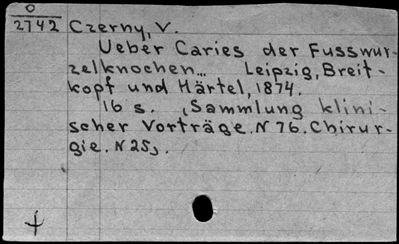 O
2742 Czerny, V.
Ueber Caries der Fusswur-
zelknochen... Leipzig, Breit-
kopf und Härtel, 1874.
16 s. (Sammlung klini-
scher Vorträge. N 76. Chirur-
gie. N 25).